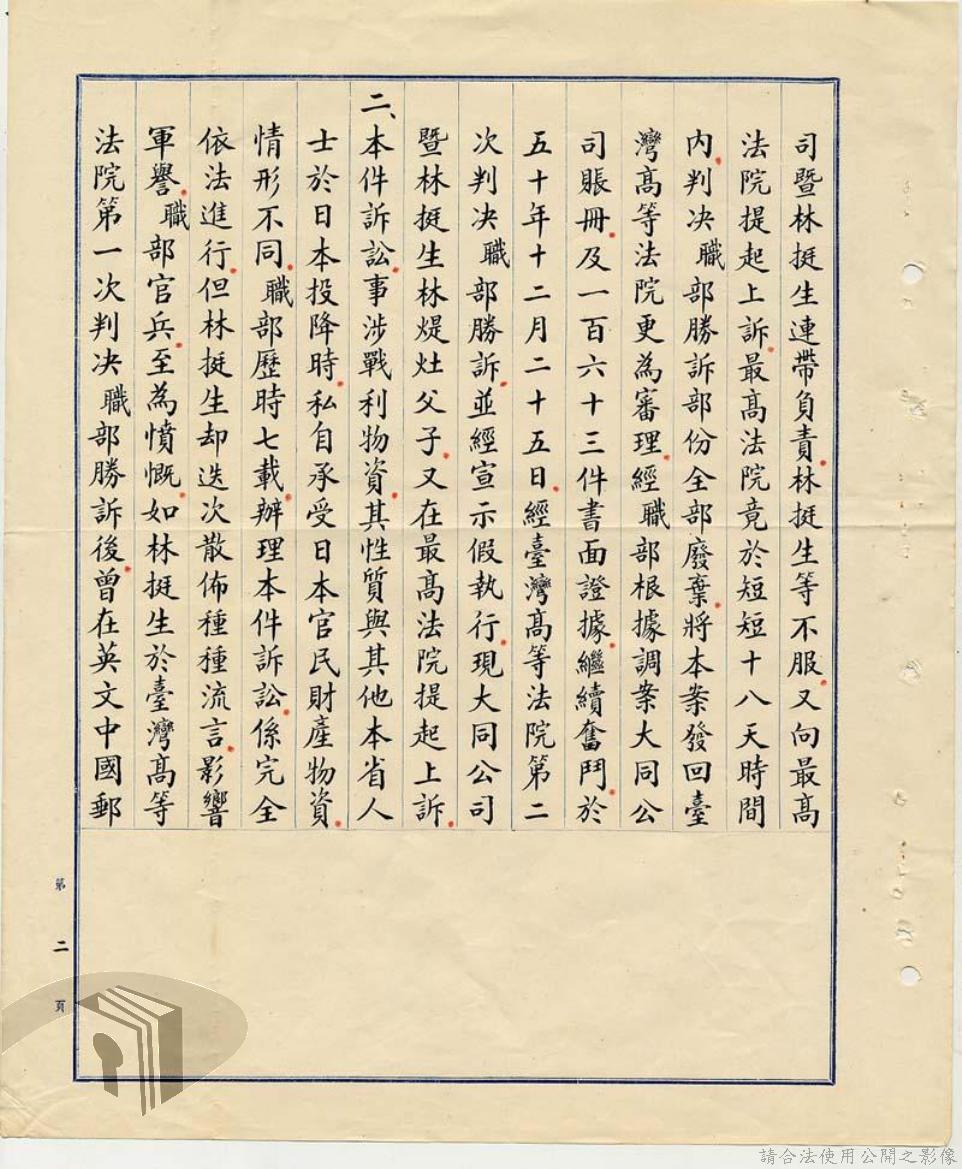 司暨林挺生連帶負責林挺生等不服又向最高
法院提起上訴最高法院竟於短短十八天時間
內判決職部勝訴部份全部廢棄將本案發回臺
灣高等法院更為審理經職部根據調案大同公
司賬冊及一百六十三件書面證據繼續奮鬥於
五十年十二月二十五日經臺灣高等法院第二
次判决職部勝訴並經宣示假執行現大同公司
暨林挺生林煶灶父子又在最高法院提起上訴
二、本件訴訟事涉戰利物資其性質與其他本省人
士於日本投降時私自承受日本官民財產物資
情形不同職部歷時七載辦理本件訴訟係完全
依法進行但林挺生却迭次散佈種種流言影響
軍譽職部官兵至為憤慨如林挺生於臺灣高等
法院第一次判决職部勝訴後曾在英文中國郵
第二頁
請合法使用公開之影像